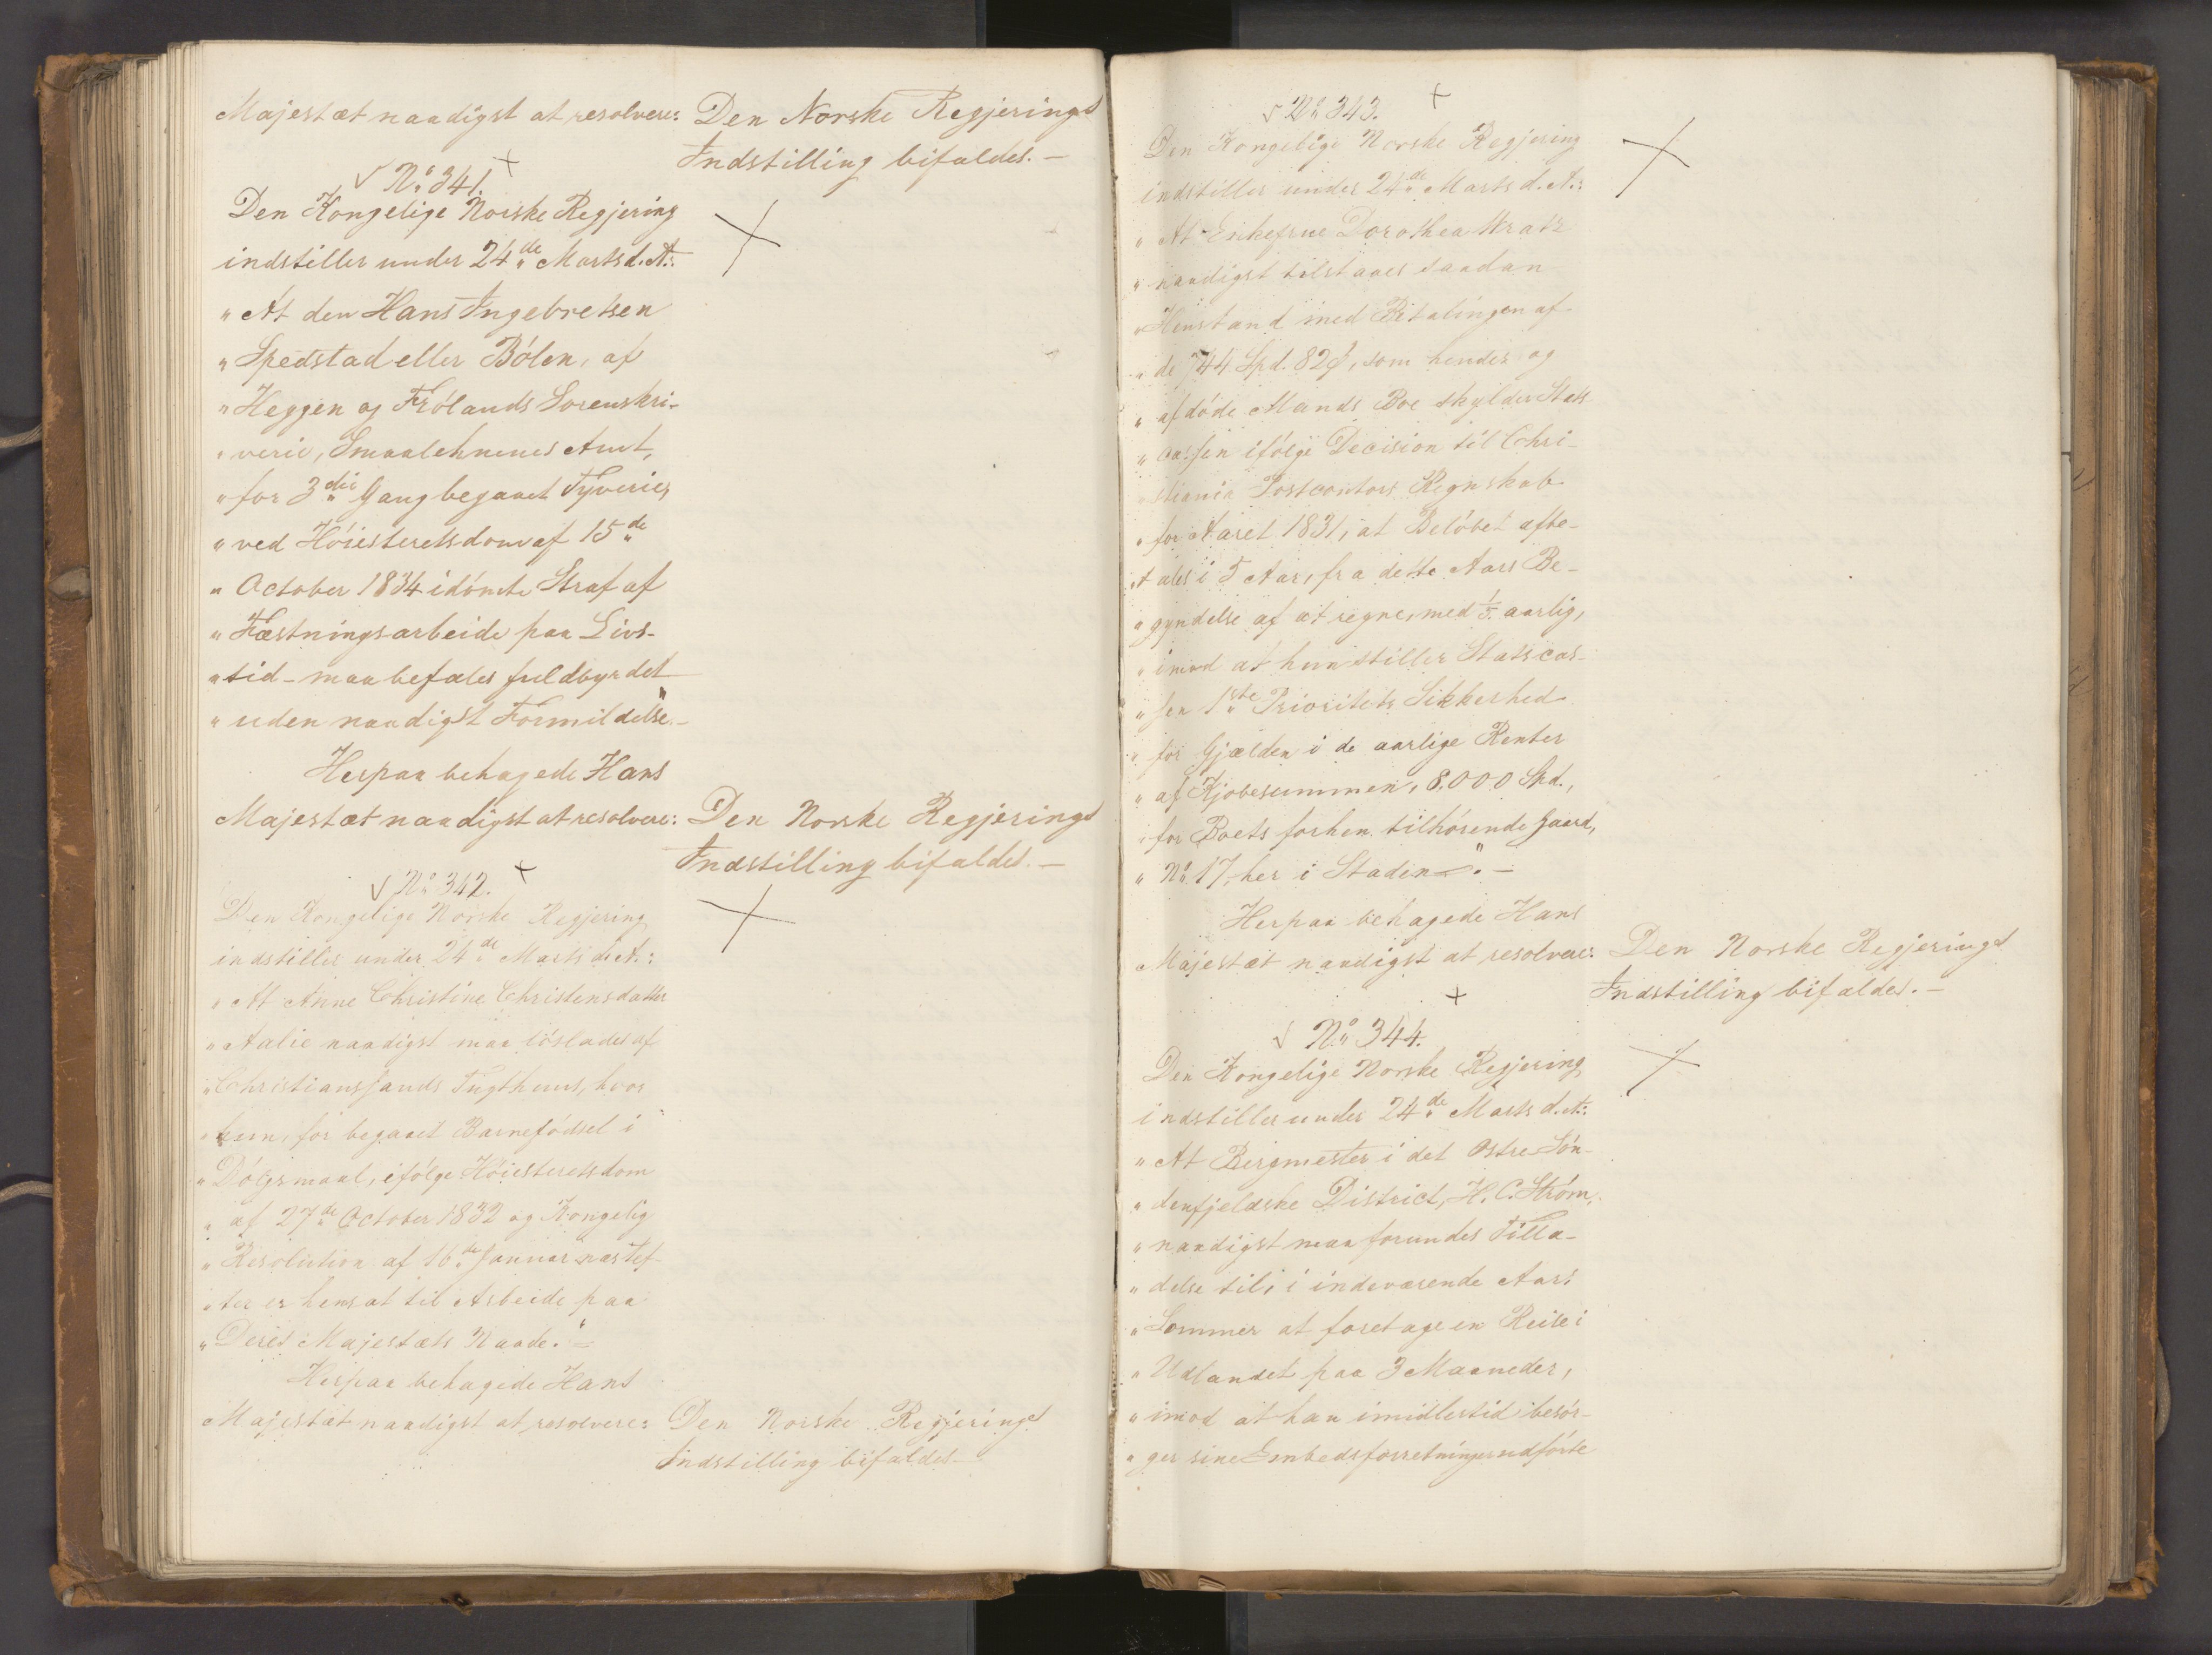 Majestæt naadigst at resolvere: Den Norske Regjerings
Indstilling bifaldes.—
No 341.
Den Kongelige Norske Regjering
indstiller under 24de Marts d. A.:
"At den Hans Ingebretsen
"Spedstad eller Bólen, af
"Heggen og Frólands Sorenskri-
"verie, Smaalehnenes Amt,
"for 3die Gang begaaet Tyverie,
"ved Hóiesteretsdom af 15de
"October 1834 idómte Straf af
"Fæstningsarbeide paa Livs-
"tid - maa befales fuldbyrdet
"uden naadigst Formildelse."—
Herpaa behagede Hans
Majestæt naadigst at resolvere: Den Norske Regjerings
Indstilling bifaldes.—
No 342.
Den Kongelige Norske Regjering
indstiller under 24de Marts d. A.:
"At Anne Christine Christensdatter
"Aalie naadigst maa lóslades af
"Christianssands Tugthuus, hvor
"hun, for begaaet Barnefódsel i
"Dólgsmaal, ifólge Hóiesteretsdom
"af 27de October 1832 og Kongelig
"Resolution af 16de Januar næstef-
"ter er hensat til Arbeide paa
"Deres Majestæts Naade."—
Herpaa behagede Hans
Majestæt naadigst at resolvere: Den Norske Regjerings
Indstilling bifaldes—
No 343.
Den Kongelige Norske Regjering
indstiller under 24de Marts d. A.:
"At Enkefrue Dorothea Kratz
"naadigst tilstaaes saadan
"Henstand med Betalingen af
"de 744 Spd. 82 ß, som hendes og
"afdóde Mands Boe skylder Stats
"cassen ifólge Decision til Chri-
"stiania Postcontors Regnskab
"for Aaret 1831, at Belóbet afbe-
"tales i 5 Aar, fra dette Aars Be-
"gyndelse af at regne, med 1/5 aarlig,
"imod at hun stiller Statscas-
"sen 1ste Prioritets Sikkerhed
"for Gjælden i de aarlige Renter
"af Kjóbesummen, 8,000 Spd.,
"for Boets forhen tilhórende Gaard,
"No 17, her i Staden".—
Herpaa behagede Hans
Majestæt naadigst at resolvere: Den Norske Regjerings
Indstilling bifaldes.—
No 344.
Den Kongelige Norske Regjering
indstiller under 24de Marts d. A.:
"At Bergmester i det Ostre-Són-
"denfjeldske District, H. C. Stróm,
"naadigst maa forundes Tilla-
"delse til, i indeværende Aars
"Sommer at foretage en Reise i
"Udlandet paa 3 Maaneder,
"imod at han imidlertid besór-
"ger sine Embedsforretninger udfórte